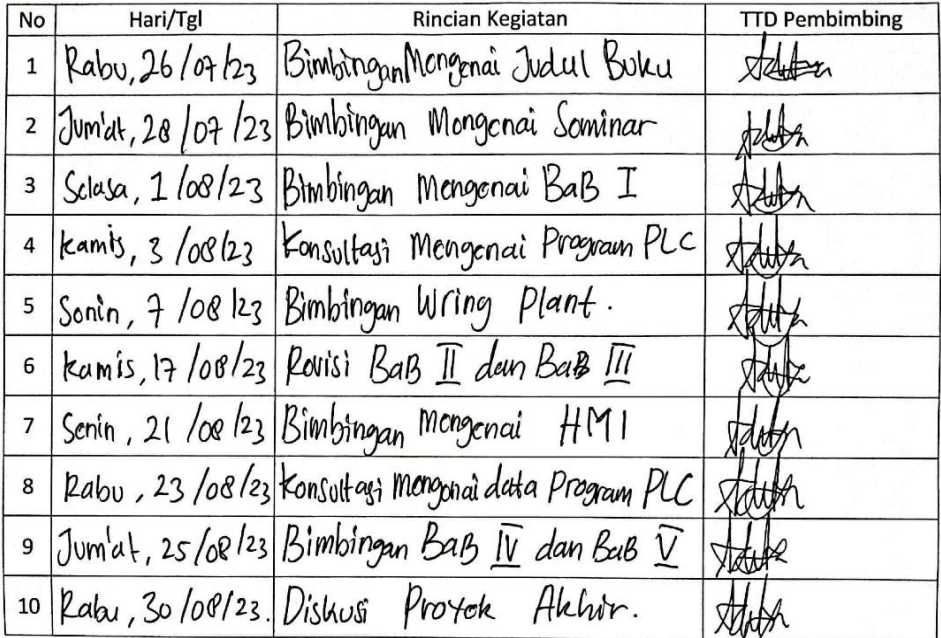 No Hari/Tgl Rincian Kegiatan TTD Pembimbing
1 Rabu, 26/07/23 Bimbingan Mengenai Judul Buku
2 Jum'at, 28/07/23 Bimbingan Mengenai Seminar
3 Selasa, 1/08/23 Bimbingan Mengenai BaB I
4 Kamis, 3/08/23 Konsultasi Mengenai Program PLC
5 Senin, 7/08/23 Bimbingan Wring Plant.
6 Kamis, 17/08/23 Revisi BaB II dan BaB III
7 Senin, 21/08/23 Bimbingan Mengenai HMI
8 Rabu, 23/08/23 Konsultasi Mengenai data Program PLC
9 Jum'at, 25/08/23 Bimbingan BaB IV dan BaB V
10 Rabu, 30/08/23. Diskusi Proyek Akhir.